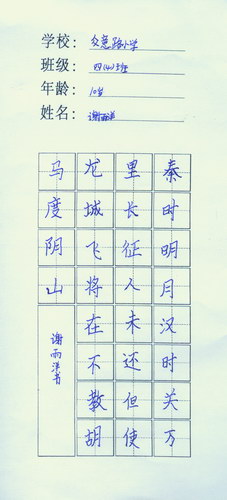 学校: 路小学
班级: 班
年龄: 10岁
姓名: 谢雨洋
秦时明月汉时关万
里长征人未还但使
龙城飞将在不教胡
马度阴山
谢雨洋书